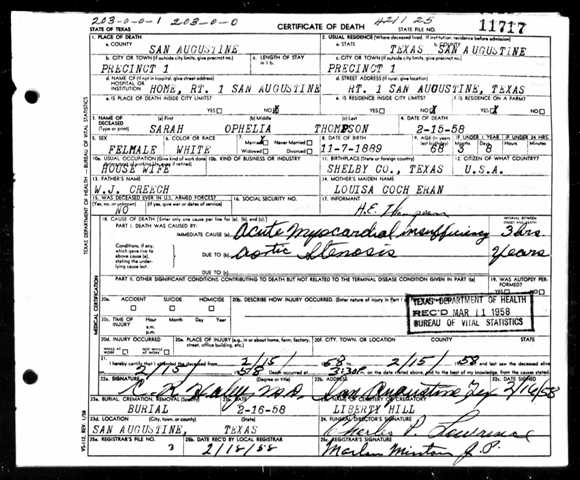 203-0-0-1 203-0-0 421.25
STATE OF TEXAS CERTIFICATE OF DEATH STATE FILE NO. 11717
1. PLACE OF DEATH 2. USUAL RESIDENCE (Where deceased lived. If institution: residence before admission)
a. COUNTY SAN AUGUSTINE a. STATE TEXAS b. COUNTY SAN AUGUSTINE
b. CITY OR TOWN (If outside city limits, give precinct no.) c. LENGTH OF STAY c. CITY OR TOWN (If outside city limits, give precinct no.)
PRECINCT 1 PRECINCT 1
d. NAME OF (If not in hospital, give street address) HOSPITAL OR INSTITUTION d. STREET ADDRESS (If rural, give location)
HOME, RT. 1 SAN AUGUSTINE RT. 1 SAN AUGUSTINE, TEXAS
e. IS PLACE OF DEATH INSIDE CITY LIMITS? e. IS RESIDENCE INSIDE CITY LIMITS? f. IS RESIDENCE ON A FARM?
YES NO X YES NO X YES X NO
3. NAME OF DECEASED (Type or print) (a) First (b) Middle (c) Last 4. DATE OF DEATH
SARAH OPHELIA THOMPSON 2-15-58
5. SEX 6. COLOR OR RACE 7. Married Never Married Widowed Divorced 8. DATE OF BIRTH 9. AGE IF UNDER 1 YEAR IF UNDER 24 HRS.
FELMALE WHITE 11-7-1889 68 3 8
10a. USUAL OCCUPATION (Give kind of work 10b. KIND OF BUSINESS OR INDUSTRY 11. BIRTHPLACE (State or foreign country) 12. CITIZEN OF WHAT COUNTRY?
HOUSE WIFE SHELBY CO., TEXAS U.S.A.
13. FATHER'S NAME 14. MOTHER'S MAIDEN NAME
W.J. CREECH LOUISA COCH ERAN
15. WAS DECEASED EVER IN U.S. ARMED FORCES? 16. SOCIAL SECURITY NO. 17. INFORMANT
(Yes, no, or unknown) (If yes, give war or dates of service)
NO H.E. Thompson
18. CAUSE OF DEATH (Enter only one cause per line for (a), (b), and (c).) INTERVAL BETWEEN ONSET AND DEATH
PART I. DEATH WAS CAUSED BY: IMMEDIATE CAUSE (a) Acute Myocardial insufficiency 3 hrs.
Conditions, if any, which gave rise to above cause (a), stating the underlying cause last. DUE TO (b) Aortic Stenosis Years
DUE TO (c)
PART II. OTHER SIGNIFICANT CONDITIONS CONTRIBUTING TO DEATH BUT NOT RELATED TO THE TERMINAL DISEASE CONDITION GIVEN IN PART I(a) 19. WAS AUTOPSY PERFORMED?
YES NO
20a. ACCIDENT SUICIDE HOMICIDE 20b. DESCRIBE HOW INJURY OCCURRED.
TEXAS DEPARTMENT OF HEALTH
REC'D MAR 11 1958
BUREAU OF VITAL STATISTICS
20c. TIME OF INJURY Hour Month Day Year a.m. p.m.
20d. INJURY OCCURRED 20e. PLACE OF INJURY (e.g., in or about home, farm, factory, street, office building, etc.) 20f. CITY, TOWN, OR LOCATION COUNTY STATE
WHILE AT WORK NOT WHILE AT WORK
21. 2/15 58 2/15 58 and last saw the deceased alive
2/15 58 Death occurred at 3:30P m. on the date stated above, and to the best of my knowledge, from the causes stated.
22a. SIGNATURE (Degree or title) 22b. ADDRESS 22c. DATE SIGNED
M.D. San Augustine Tex 2/16/58
23a. BURIAL, CREMATION, REMOVAL (Specify) 23b. DATE 23c. NAME OF CEMETERY OR CREMATORY
BURIAL 2-16-58 LIBERTY HILL
23d. LOCATION (City, town, or county) (State) 24. FUNERAL DIRECTOR'S SIGNATURE
SAN AUGUSTINE, TEXAS Charles P. Lawrence
25a. REGISTRAR'S FILE NO. 25b. DATE REC'D BY LOCAL REGISTRAR 25c. REGISTRAR'S SIGNATURE
3 2/18/58 Marlan Minton J.P.
TEXAS DEPARTMENT OF HEALTH — BUREAU OF VITAL STATISTICS
MEDICAL CERTIFICATION